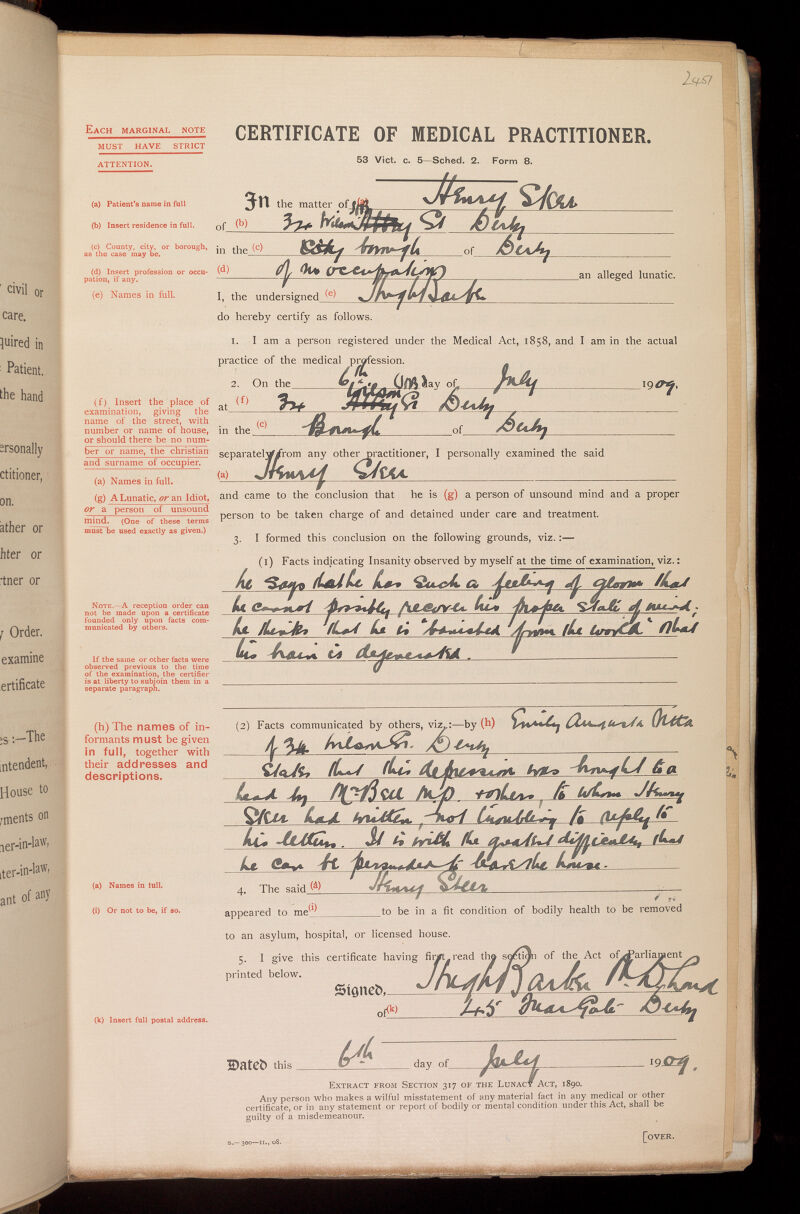 2451
EACH MARGINAL NOTE
MUST HAVE STRICT
ATTENTION.
CERTIFICATE OF MEDICAL PRACTITIONER.
53 Vict. c. 5—Sched. 2. Form 8.
(a) Patient's name in full
In the matter of (a) Henry Steer
(b) Insert residence in full.
of (b) 32 Wilson St Derby
(c) County, city, or borough,
as the case may be.
in the (c) borough of Derby
(d) Insert profession or occu-
pation, if any.
(d) of no occupation an alleged lunatic.
(e) Names in full.
I, the undersigned (e) Hugh Barber
do hereby certify as follows.
1. I am a person registered under the Medical Act, 1858, and I am in the actual
practice of the medical profession.
2. On the 6th day of July 1909,
(f) Insert the place of
examination, giving the
name of the street, with
number or name of house,
or should there be no num-
ber or name, the christian
and surname of occupier.
at (f) Wilson St Derby
in the (c) Borough of Derby
separately from any other practitioner, I personally examined the said
(a) Names in full.
(a) Henry Steer
(g) A Lunatic, or an Idiot,
or a person of unsound
mind. (One of these terms
must be used exactly as given.)
and came to the conclusion that he is (g) a person of unsound mind and a proper
person to be taken charge of and detained under care and treatment.
3. I formed this conclusion on the following grounds, viz.:—
(1) Facts indicating Insanity observed by myself at the time of examination, viz.:
he says that he has such a feeling of gloom that
NOTE.—A reception order can
not be made upon a certificate
founded only upon facts com-
municated by others.
he cannot possibly recover his proper state of mind;
he thinks that he is "banished from the world" & that
his brain is degenerated.
If the same or other facts were
observed previous to the time
of the examination, the certifier
is at liberty to subjoin them in a
separate paragraph.
(h) The names of in-
formants must be given
in full, together with
their addresses and
descriptions.
(2) Facts communicated by others, viz.:—by (h) Emily Augusta
of Wilson St. Derby
States that this depression was brought to a
head by Mr Bell M.P. & others, to whom Henry
Steer had written, not troubling to reply to
his letters. It is with the greatest difficulty that
he can be persuaded to leave the house.
(a) Names in full.
4. The said (a) Henry Steer
(i) Or not to be, if so.
appeared to me (i) to be in a fit condition of bodily health to be removed
to an asylum, hospital, or licensed house.
5. I give this certificate having first read the section of the Act of Parliament
printed below.
Signed, Hugh Barber M.D. Lond
(k) Insert full postal address.
of (k) 45 Friar Gate Derby
Dated this 6th day of July 1909.
EXTRACT FROM SECTION 317 OF THE LUNACY ACT, 1890.
Any person who makes a wilful misstatement of any material fact in any medical or other
certificate, or in any statement or report of bodily or mental condition under this Act, shall be
guilty of a misdemeanour.
[OVER.
civil or
care.
quired in
Patient.
the hand
ersonally
ctitioner,
on.
ather or
hter or
tner or
Order.
examine
ertificate
s:—The
ntendent,
House to
ments on
er-in-law,
ter-in-law,
ant of any